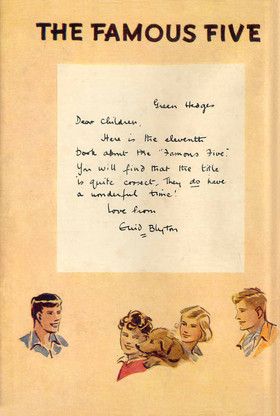 THE FAMOUS FIVE
Green Hedges
Dear Children,
Here is the eleventh
book about the "Famous Five".
You will find that the title
is quite correct, They do have
a wonderful time!
Love from
Enid Blyton